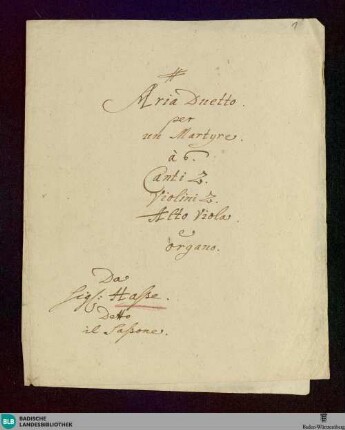 Aria Duetto.
per
un Martyre.
à 6.
Canti 2.
Violini 2.
Alto Viola.
e
organo.
Da
Sigl: Haße.
Detto
il Saßone.
BLB
BADISCHE
LANDESBIBLIOTHEK
Baden-Württemberg